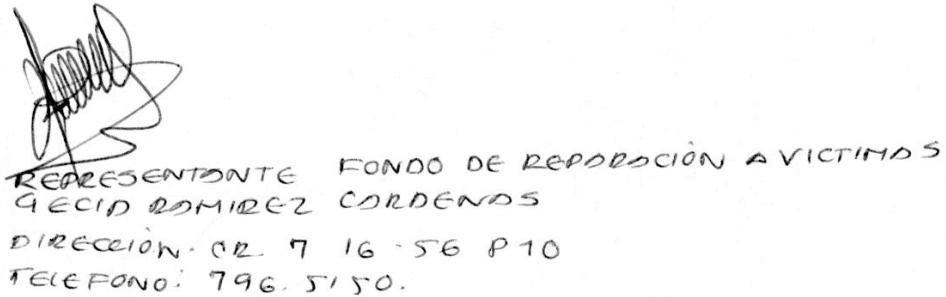 REPRESENTANTE FONDO DE REPARACIÓN A VICTIMAS
GECID RAMIREZ CARDENAS
DIRECCIÓN. CR. 7 16-56 P10
TELEFONO: 796.5150.